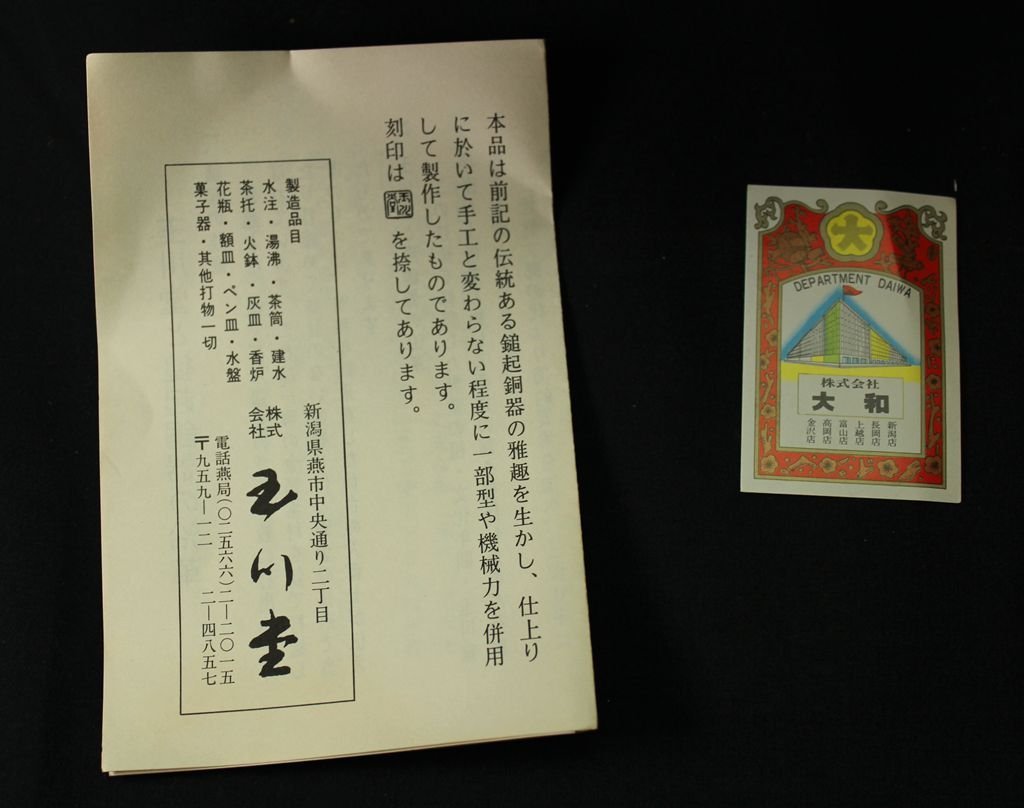 本品は前記の伝統ある鎚起銅器の雅趣を生かし、仕上り
に於いて手工と変わらない程度に一部型や機械力を併用
して製作したものであります。
刻印は 玉川堂 を捺してあります。
製造品目
水注・湯沸・茶筒・建水
茶托・火鉢・灰皿・香炉
花瓶・額皿・ペン皿・水盤
菓子器・其他打物一切
新潟県燕市中央通り二丁目
株式会社 玉川堂
電話燕局(〇二五六六)二―二〇一五
二―四八五七
〒九五九―一二
大
DEPARTMENT DAIWA
株式会社
大和
新潟店
長岡店
上越店
富山店
高岡店
金沢店